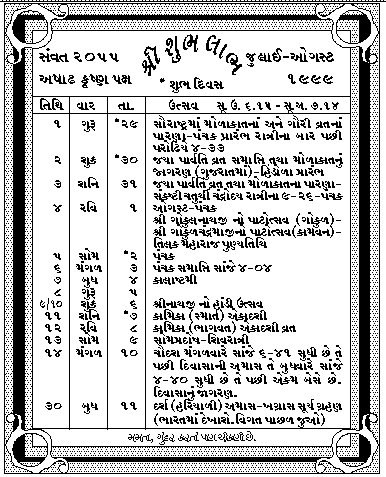 શ્રી શુભ લાભ
સંવત ૨૦૫૫
જુલાઈ-ઓગસ્ટ
અષાઢ કૃષ્ણ પક્ષ
*શુભ દિવસ
૧૯૯૯
તિથિ વાર તા. ઉત્સવ સૂ.ઉ. ૬.૧૫ - સૂ.અ. ૭.૧૪
૧ ગુરૂ *૨૯ સૌરાષ્ટ્રમાં મોળાકતનાં અને ગૌરી વ્રતનાં
પારણા-પંચક પ્રારંભ રાત્રીના બાર પછી
પરોઢિયે ૪-૩૩
૨ શુક્ર *૩૦ જયા પાર્વતિ વ્રત સમાપ્તિ તથા મોળાકાતનું
જાગરણ (ગુજરાતમાં)-હિંડોળા પ્રારંભ
૩ શનિ ૩૧ જયા પાર્વતિ વ્રત તથા મોળાકાતના પારણા-
સંકષ્ટી ચતુર્થી ચંદ્રોદય રાત્રીના ૯-૨૬-પંચક
૪ રવિ ૧ ઓગસ્ટ-પંચક
શ્રી ગોકુલનાથજી નો પાટોત્સવ (ગોકુળ)-
શ્રી ગોકુળચંદ્રમાજીના પાટોત્સવ(કામવન)-
તિલક મહારાજ પુણ્યતિથિ
૫ સોમ *૨ પંચક
૬ મંગળ ૩ પંચક સમાપ્તિ સાંજે ૪-૦૪
૭ બુધ ૪ કાલાષ્ટમી
૮ ગુરૂ ૫
૯/૧૦ શુક્ર ૬ શ્રીનાથજી નો હાંડી ઉત્સવ
૧૧ શનિ *૭ કામિકા (સ્માર્ત) એકાદશી
૧૨ રવિ ૮ કામિકા (ભાગવત) એકાદશી વ્રત
૧૩ સોમ ૯ સોમપ્રદોષ-શિવરાત્રી
૧૪ મંગળ ૧૦ ચૌદશ મંગળવારે સાંજે ૬-૪૧ સુધી છે તે
પછી દિવાસાની અમાસ તે બુધવારે સાંજે
૪-૪૦ સુધી છે તે પછી એકમ બેસે છે.
દિવાસાનું જાગરણ.
૩૦ બુધ ૧૧ દર્શ (હરિયાળી) અમાસ-ખગ્રાસ સૂર્ય ગ્રહણ
(ભારતમાં દેખાશે. વિગત પાછળ જુઓ)
મમતા, ગુંદર કરતાં પણ ચીકણી છે.